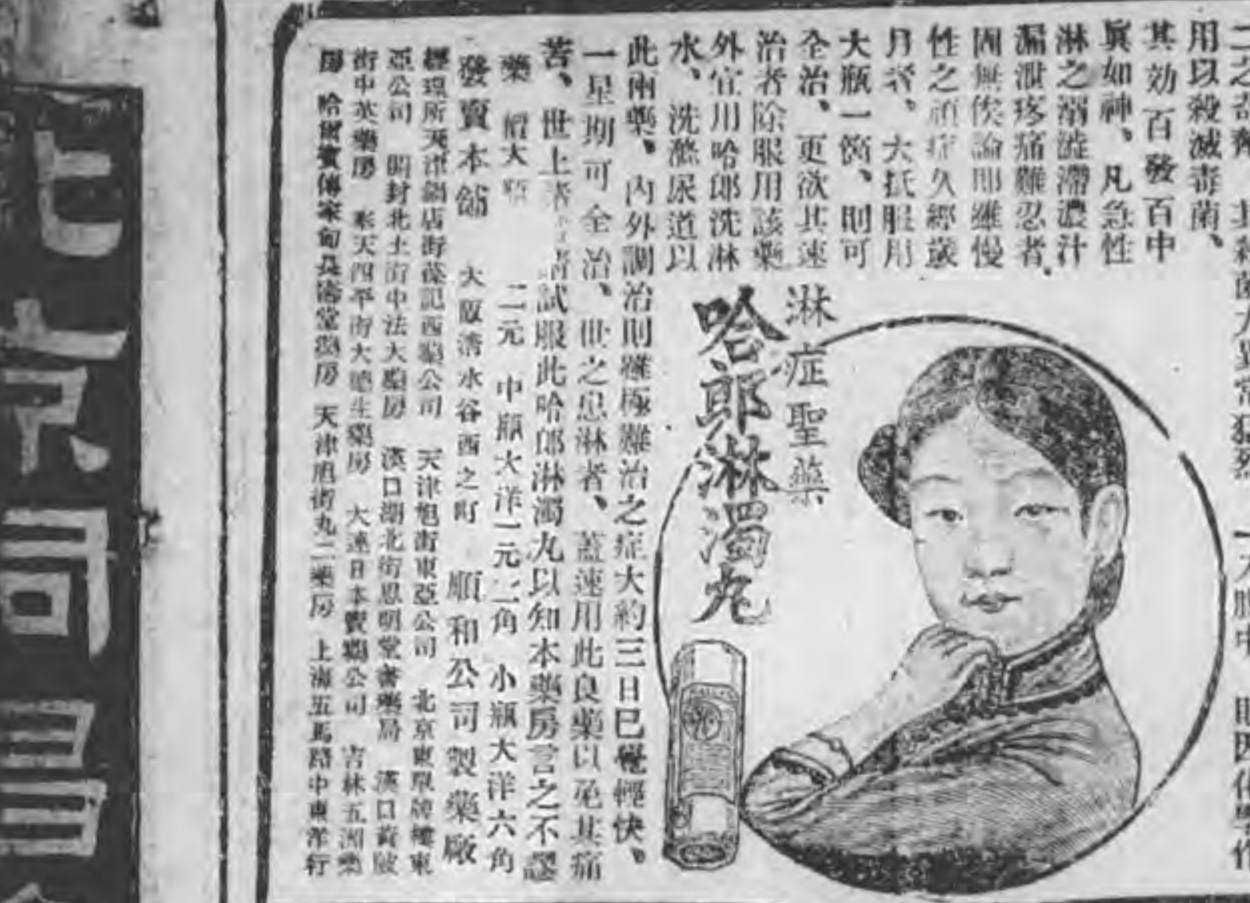 用以殺滅毒菌、
其効百發百中
眞如神、凡急性
淋之溺澁滯濃汁
漏泄疼痛難忍者、
固無俟論即雖慢
性之頑症久經歲
月者、大抵服用
大瓶一箇、則可
全治、更欲其速
治者除服用該藥
外宜用哈郎洗淋
水、洗滌尿道以
此兩藥、內外調治則雖極難治之症大約三日巳覺輕快、
一星期可全治、世之患淋者、蓋速用此良藥以免其痛
苦、世上 試服此哈郎淋濁丸以知本藥房言之不謬
藥價大瓶 二元 中瓶大洋一元二角 小瓶大洋六角
發賣本舖 大阪 水谷西之町 順和公司製藥廠
經理所天津鍋店街 記西藥公司 天津旭街東亞公司 北京東單牌樓東
亞公司 開封北土街中法大藥房 漢口湖北街思明堂書藥局 漢口黃陂
街中英藥房 奉天四平街大德生藥房 大連日本賣藥公司 吉林五洲藥
房 哈爾賓傅家甸長濤堂藥房 天津旭街丸二藥房 上海五馬路中東洋行
淋症聖藥
哈郎淋濁丸
北京同昌